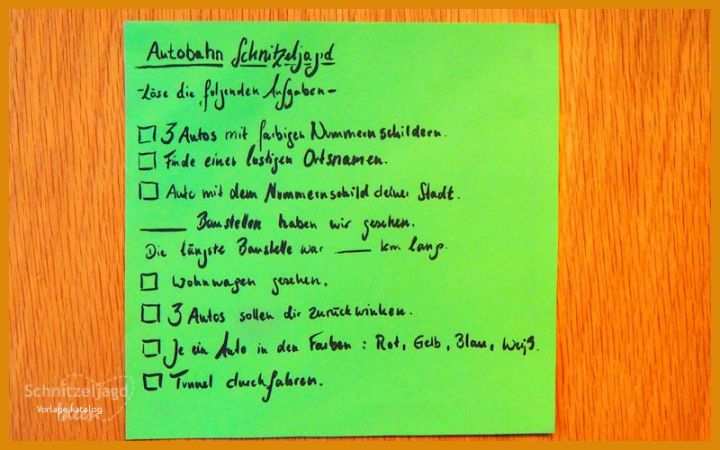 Autobahn Schnitzeljagd
-Löse die folgenden Aufgaben-
3 Autos mit farbigen Nummernschildern.
Finde einen lustigen Ortsnamen.
Auto mit dem Nummernschild deiner Stadt.
____ Baustellen haben wir gesehen.
Die längste Baustelle war ____ km lang.
Wohnwagen gesehen.
3 Autos sollen dir zurückwinken.
Je ein Auto in den Farben: Rot, Gelb, Blau, Weiß.
Tunnel durchfahren.
Schnitzeljagd
Vorlage katalog